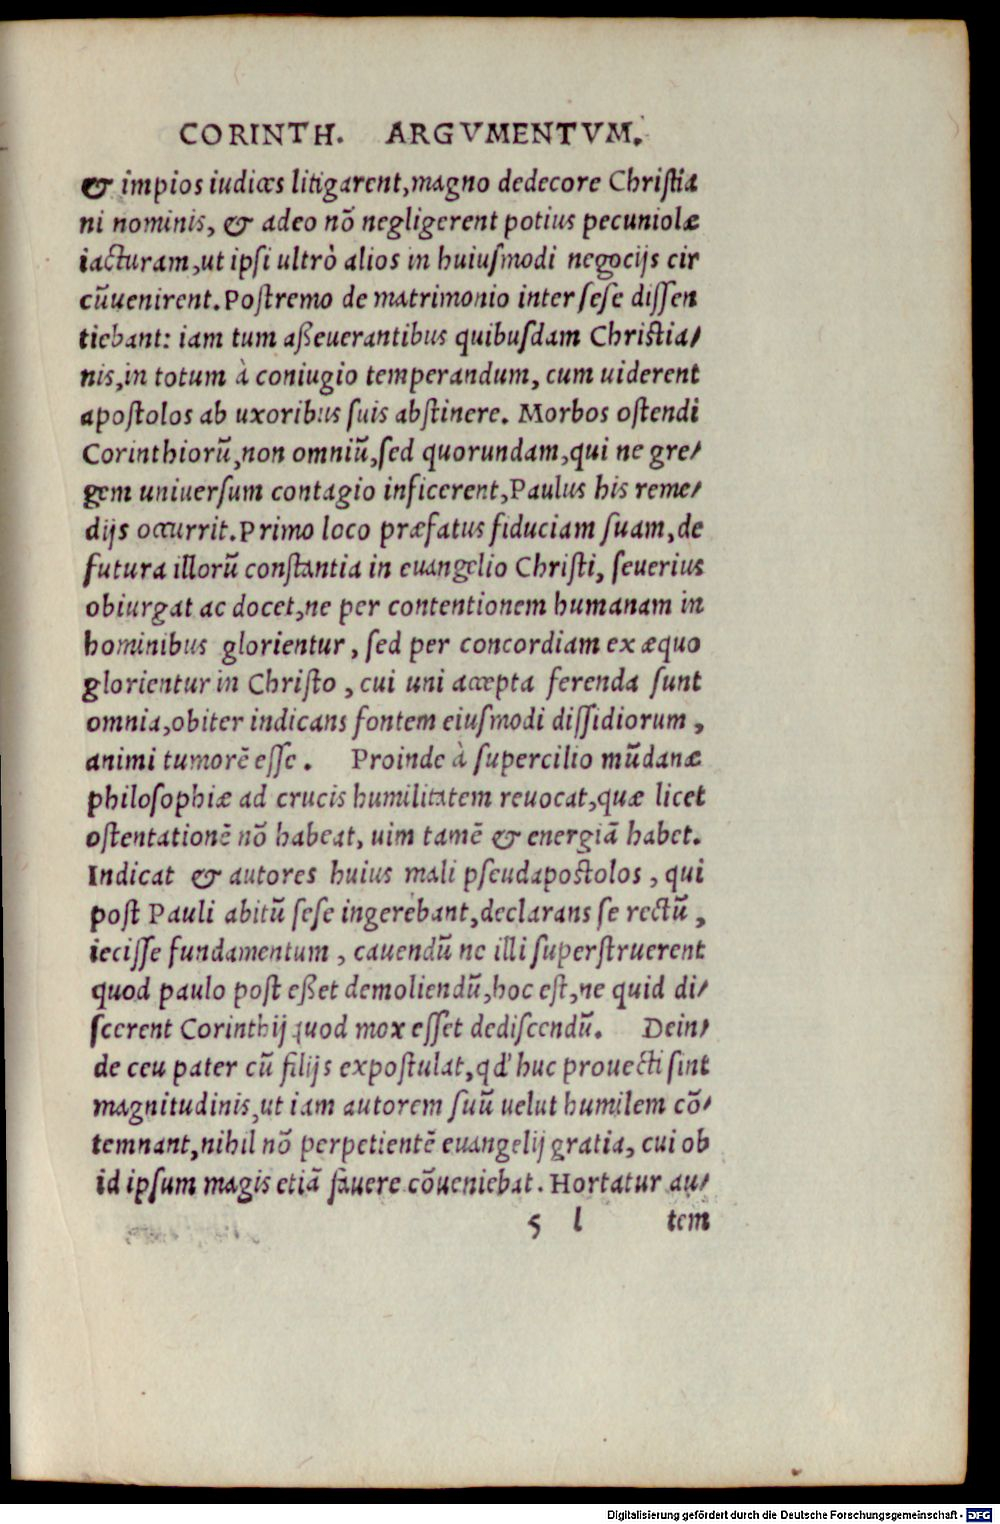 CORINTH. ARGVMENTVM.
& impios iudices litigarent, magno dedecore Christia
ni nominis, & adeo nõ negligerent potius pecuniolæ
iacturam, ut ipsi ultrò alios in huiusmodi negocijs cir
cũuenirent. Postremo de matrimonio inter sese dissen
tiebant: iam tum aßeuerantibus quibusdam Christia/
nis, in totum à coniugio temperandum, cum uiderent
apostolos ab uxoribus suis abstinere. Morbos ostendi
Corinthiorũ, non omniũ, sed quorundam, qui ne gre/
gem uniuersum contagio inficerent, Paulus his reme/
dijs occurrit. Primo loco præfatus fiduciam suam, de
futura illorũ constantia in euangelio Christi, seuerius
obiurgat ac docet, ne per contentionem humanam in
hominibus glorientur, sed per concordiam ex æquo
glorientur in Christo, cui uni accepta ferenda sunt
omnia, obiter indicans fontem eiusmodi dissidiorum,
animi tumorẽ esse. Proinde à supercilio mũdanæ
philosophiæ ad crucis humilitatem reuocat, quæ licet
ostentationẽ nõ habeat, uim tamẽ & energiã habet.
Indicat & autores huius mali pseudapostolos, qui
post Pauli abitũ sese ingerebant, declarans se rectũ,
iecisse fundamentum, cauendũ ne illi superstruerent
quod paulo post eßet demoliendũ, hoc est, ne quid di/
scerent Corinthij quod mox esset dediscendũ. Dein/
de ceu pater cũ filijs expostulat, qd' huc prouecti sint
magnitudinis, ut iam autorem suũ uelut humilem cõ/
temnant, nihil nõ perpetientẽ euangelij gratia, cui ob
id ipsum magis etiã fauere cõueniebat. Hortatur au/
5 l tem
Digitalisierung gefördert durch die Deutsche Forschungsgemeinschaft - DFG